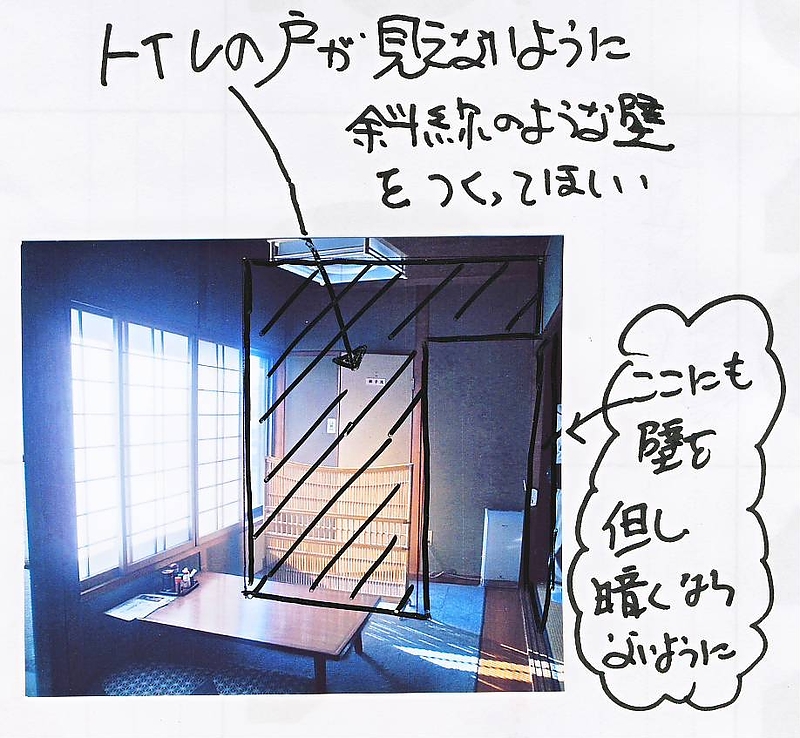 トイレの戸が見えないように
斜線のような壁
をつくってほしい
ここにも
壁を
但し
暗くなら
ないように